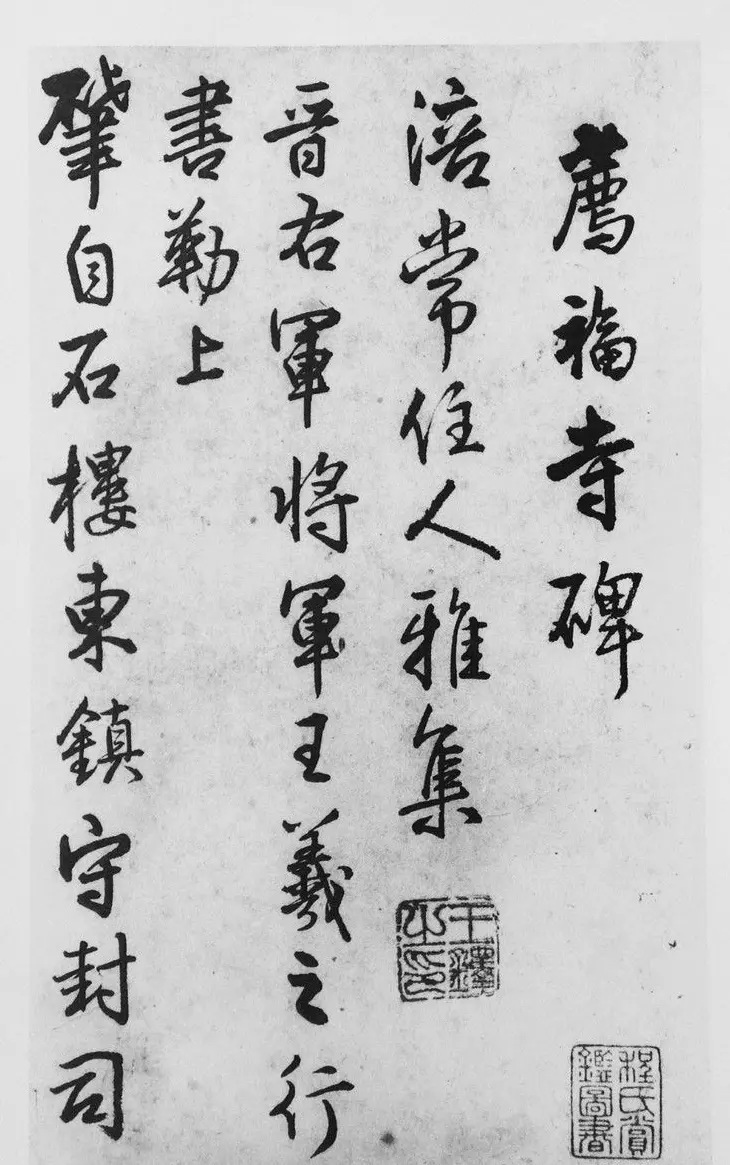 薦福寺碑
涪常住人雅集
晉右軍將軍王羲之行
書勒上
肇自石樓東鎮守封司
王鐸之印
程氏賞鑑圖書